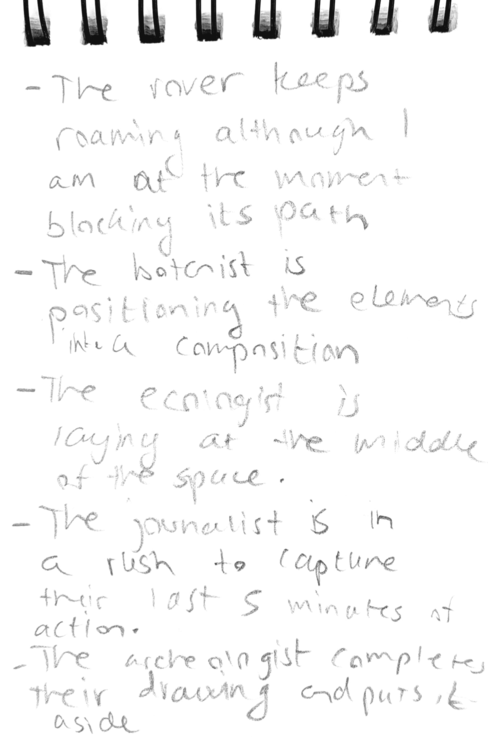 - The rover keeps
roaming although I
am at the moment
blocking its path
- The botanist is
positioning the elements
into a composition
- The ecologist is
laying at the middle
of the space.
- The jounalist is in
a rush to capture
their last 5 minutes of
action.
- The archeologist completes
their drawing and puts it
aside